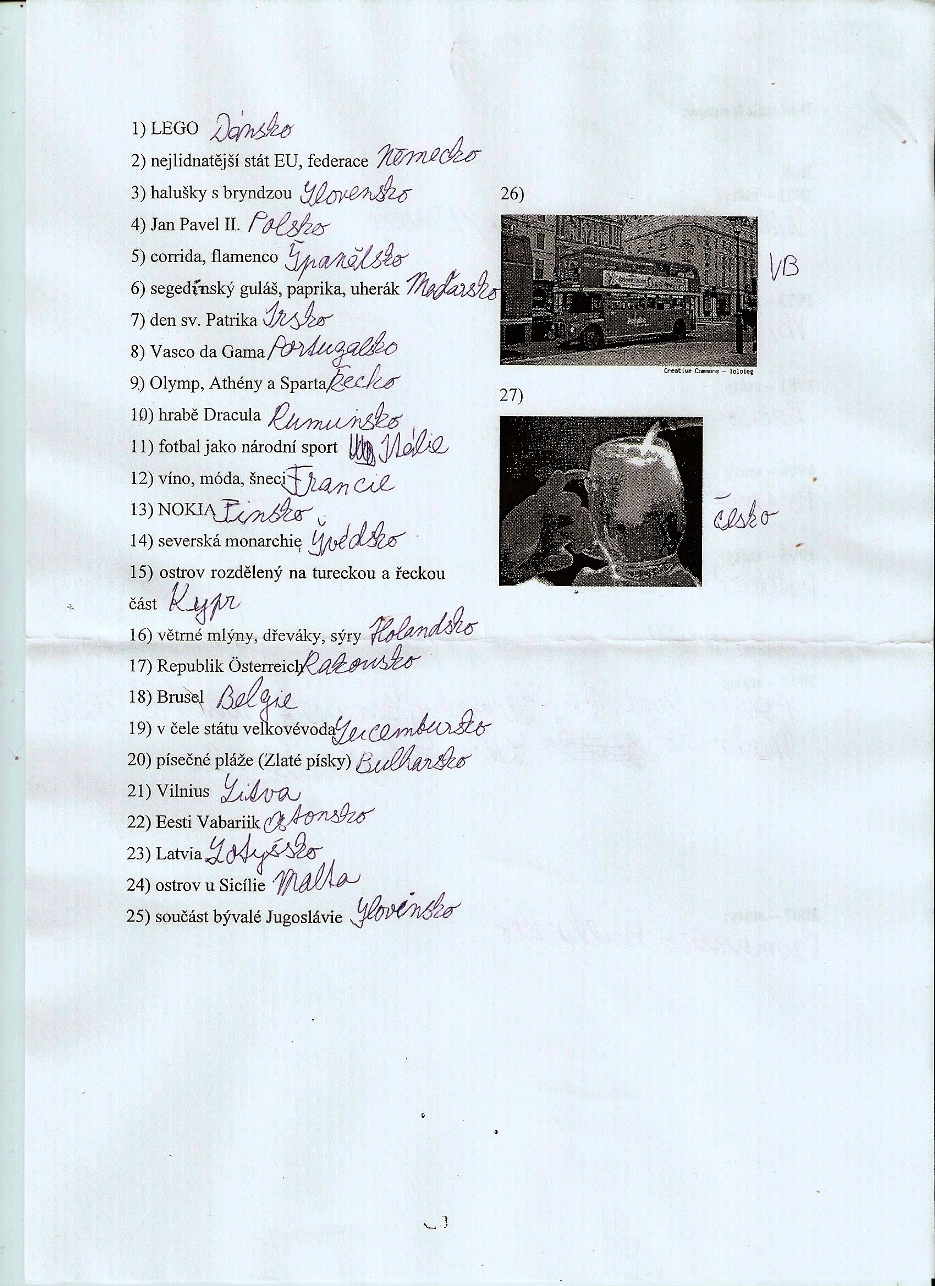 1) LEGO Dánsko
2) nejlidnatější stát EU, federace Německo
3) halušky s bryndzou Slovensko
4) Jan Pavel II. Polsko
5) corrida, flamenco Španělsko
6) segedínský guláš, paprika, uherák Maďarsko
7) den sv. Patrika Irsko
8) Vasco da Gama Portugalsko
9) Olymp, Athény a Sparta Řecko
10) hrabě Dracula Rumunsko
11) fotbal jako národní sport Itálie
12) víno, móda, šneci Francie
13) NOKIA Finsko
14) severská monarchie Švédsko
15) ostrov rozdělený na tureckou a řeckou
část Kypr
16) větrné mlýny, dřeváky, sýry Holandsko
17) Republik Österreich Rakousko
18) Brusel Belgie
19) v čele státu velkovévoda Lucembursko
20) písečné pláže (Zlaté písky) Bulharsko
21) Vilnius Litva
22) Eesti Vabariik Estonsko
23) Latvia Lotyšsko
24) ostrov u Sicílie Malta
25) součást bývalé Jugoslávie Slovinsko
26)
VB
Creative Commons - lololeg
27)
česko